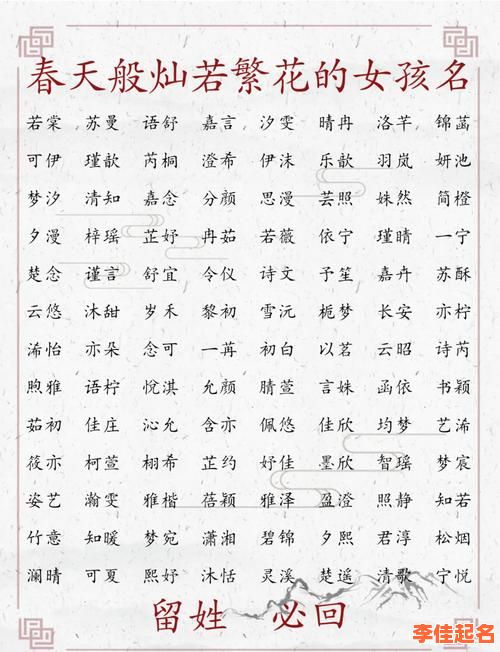 春天般灿若繁花的女孩名
若棠 苏曼 语舒 嘉言 汐雯 晴冉 洛芊 锦菡
可伊 瑾歆 芮桐 澄希 伊沫 乐歆 羽岚 妍池
梦汐 清知 嘉念 分颜 思漫 芸照 姝然 简橙
夕漫 梓瑶 芷妤 冉茹 若薇 依宁 瑾晴 一宁
楚念 谨言 舒宜 令仪 诗文 予笙 嘉卉 苏酥
云悠 沐甜 岁禾 黎初 雪沅 栀梦 长安 亦柠
浠怡 亦朵 念可 一苒 初白 以茗 云昭 诗芮
煦雅 语柠 悦淇 允颜 腈萱 言姝 函依 书颖
茹初 佳庄 沁允 含亦 佩悠 佳欣 均梦 艺浠
筱亦 柯萱 栩希 芷约 妤佳 墨欣 智瑶 梦宸
姿艺 瀚雯 雅楷 蓓颖 雅泽 盈澄 照静 知若
竹意 知暖 梦宛 潇湘 碧锦 夕熙 君淳 松烟
澜晴 可夏 熙妤 沐恬 灵溪 楚遥 清歌 宁悦
留姓 必回
李佳起名